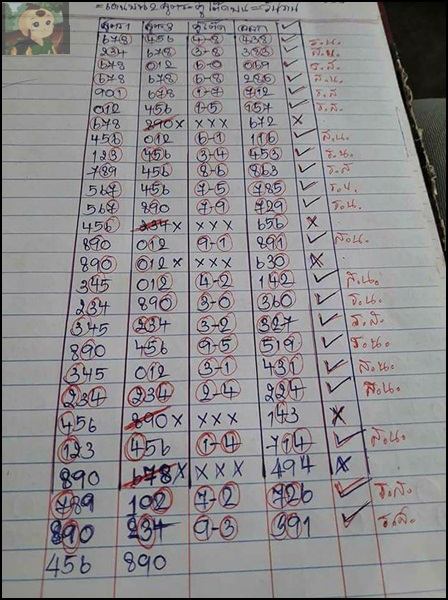 678 456 4-8 438 ✓ ร.น.
234 678 3-8 383 ✓ ส.น.
678 012 6-0 069 ✓ ร.ส
678 678 8-6 286 ✓ ส.น.
901 678 1-7 712 ✓ ร.ส
012 456 1-5 157 ✓ ร.ส.
678 890 x x x x 672 x
456 012 6-1 116 ✓ ส.น.
123 456 3-4 453 ✓ ร.น.
789 456 8-6 863 ✓ ร.ส
567 456 7-5 785 ✓ ร.น.
567 890 7-9 729 ✓ ร.น.
456 234 x x x x 656 x
890 012 9-1 891 ✓ ส.น.
890 012 x x x x 630 x
345 012 4-2 142 ✓ ส.น.
234 890 3-0 360 ✓ ร.น.
345 234 3-2 327 ✓ ร.ส.
890 456 9-5 519 ✓ ร.น.
345 012 3-1 431 ✓ ส.น.
234 234 2-4 224 ✓ ส.น.
456 890 x x x x 143 x
123 456 1-4 714 ✓ ส.น.
890 678 x x x x 494 x
789 102 7-2 726 ✓ ร.ส.
890 234 9-3 391 ✓ ร.ส.
456 890